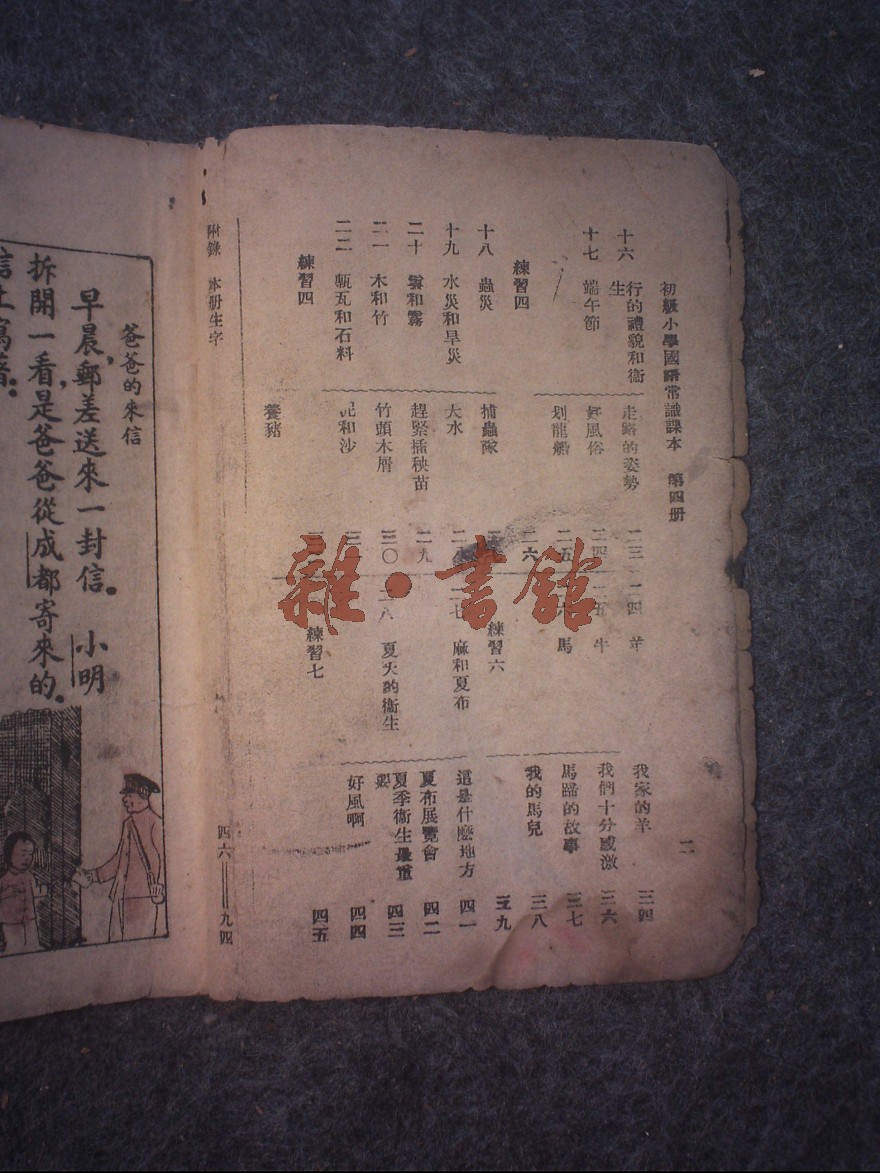 初級小學國語常識課本 第四册
二
十六 行的禮貌和衞生
走路的姿勢 二三
十七 端午節
好風俗 二四
划龍船 二五
練習四
二六
十八 蟲災
捕蟲隊
十九 水災和旱災
大水
二十 雲和霧
趕緊插秧苗 二九
二一 木和竹
竹頭木屑 三〇
二二 甎瓦和石料
泥和沙
練習四
養豬
二四 羊
我家的羊 三四
二五 牛
我們十分感激 三六
馬
馬蹄的故事 三七
我的馬兒 三八
練習六
三九
二七 麻和夏布
這是什麼地方 四一
夏布展覽會 四二
二八 夏天的衞生
夏季衞生最重要 四三
好風啊 四四
練習七
四五
附錄 本册生字
四六——九四
爸爸的來信
早晨,郵差送來一封信。小明
拆開一看,是爸爸從成都寄來的。
信上寫着。
雜·書館